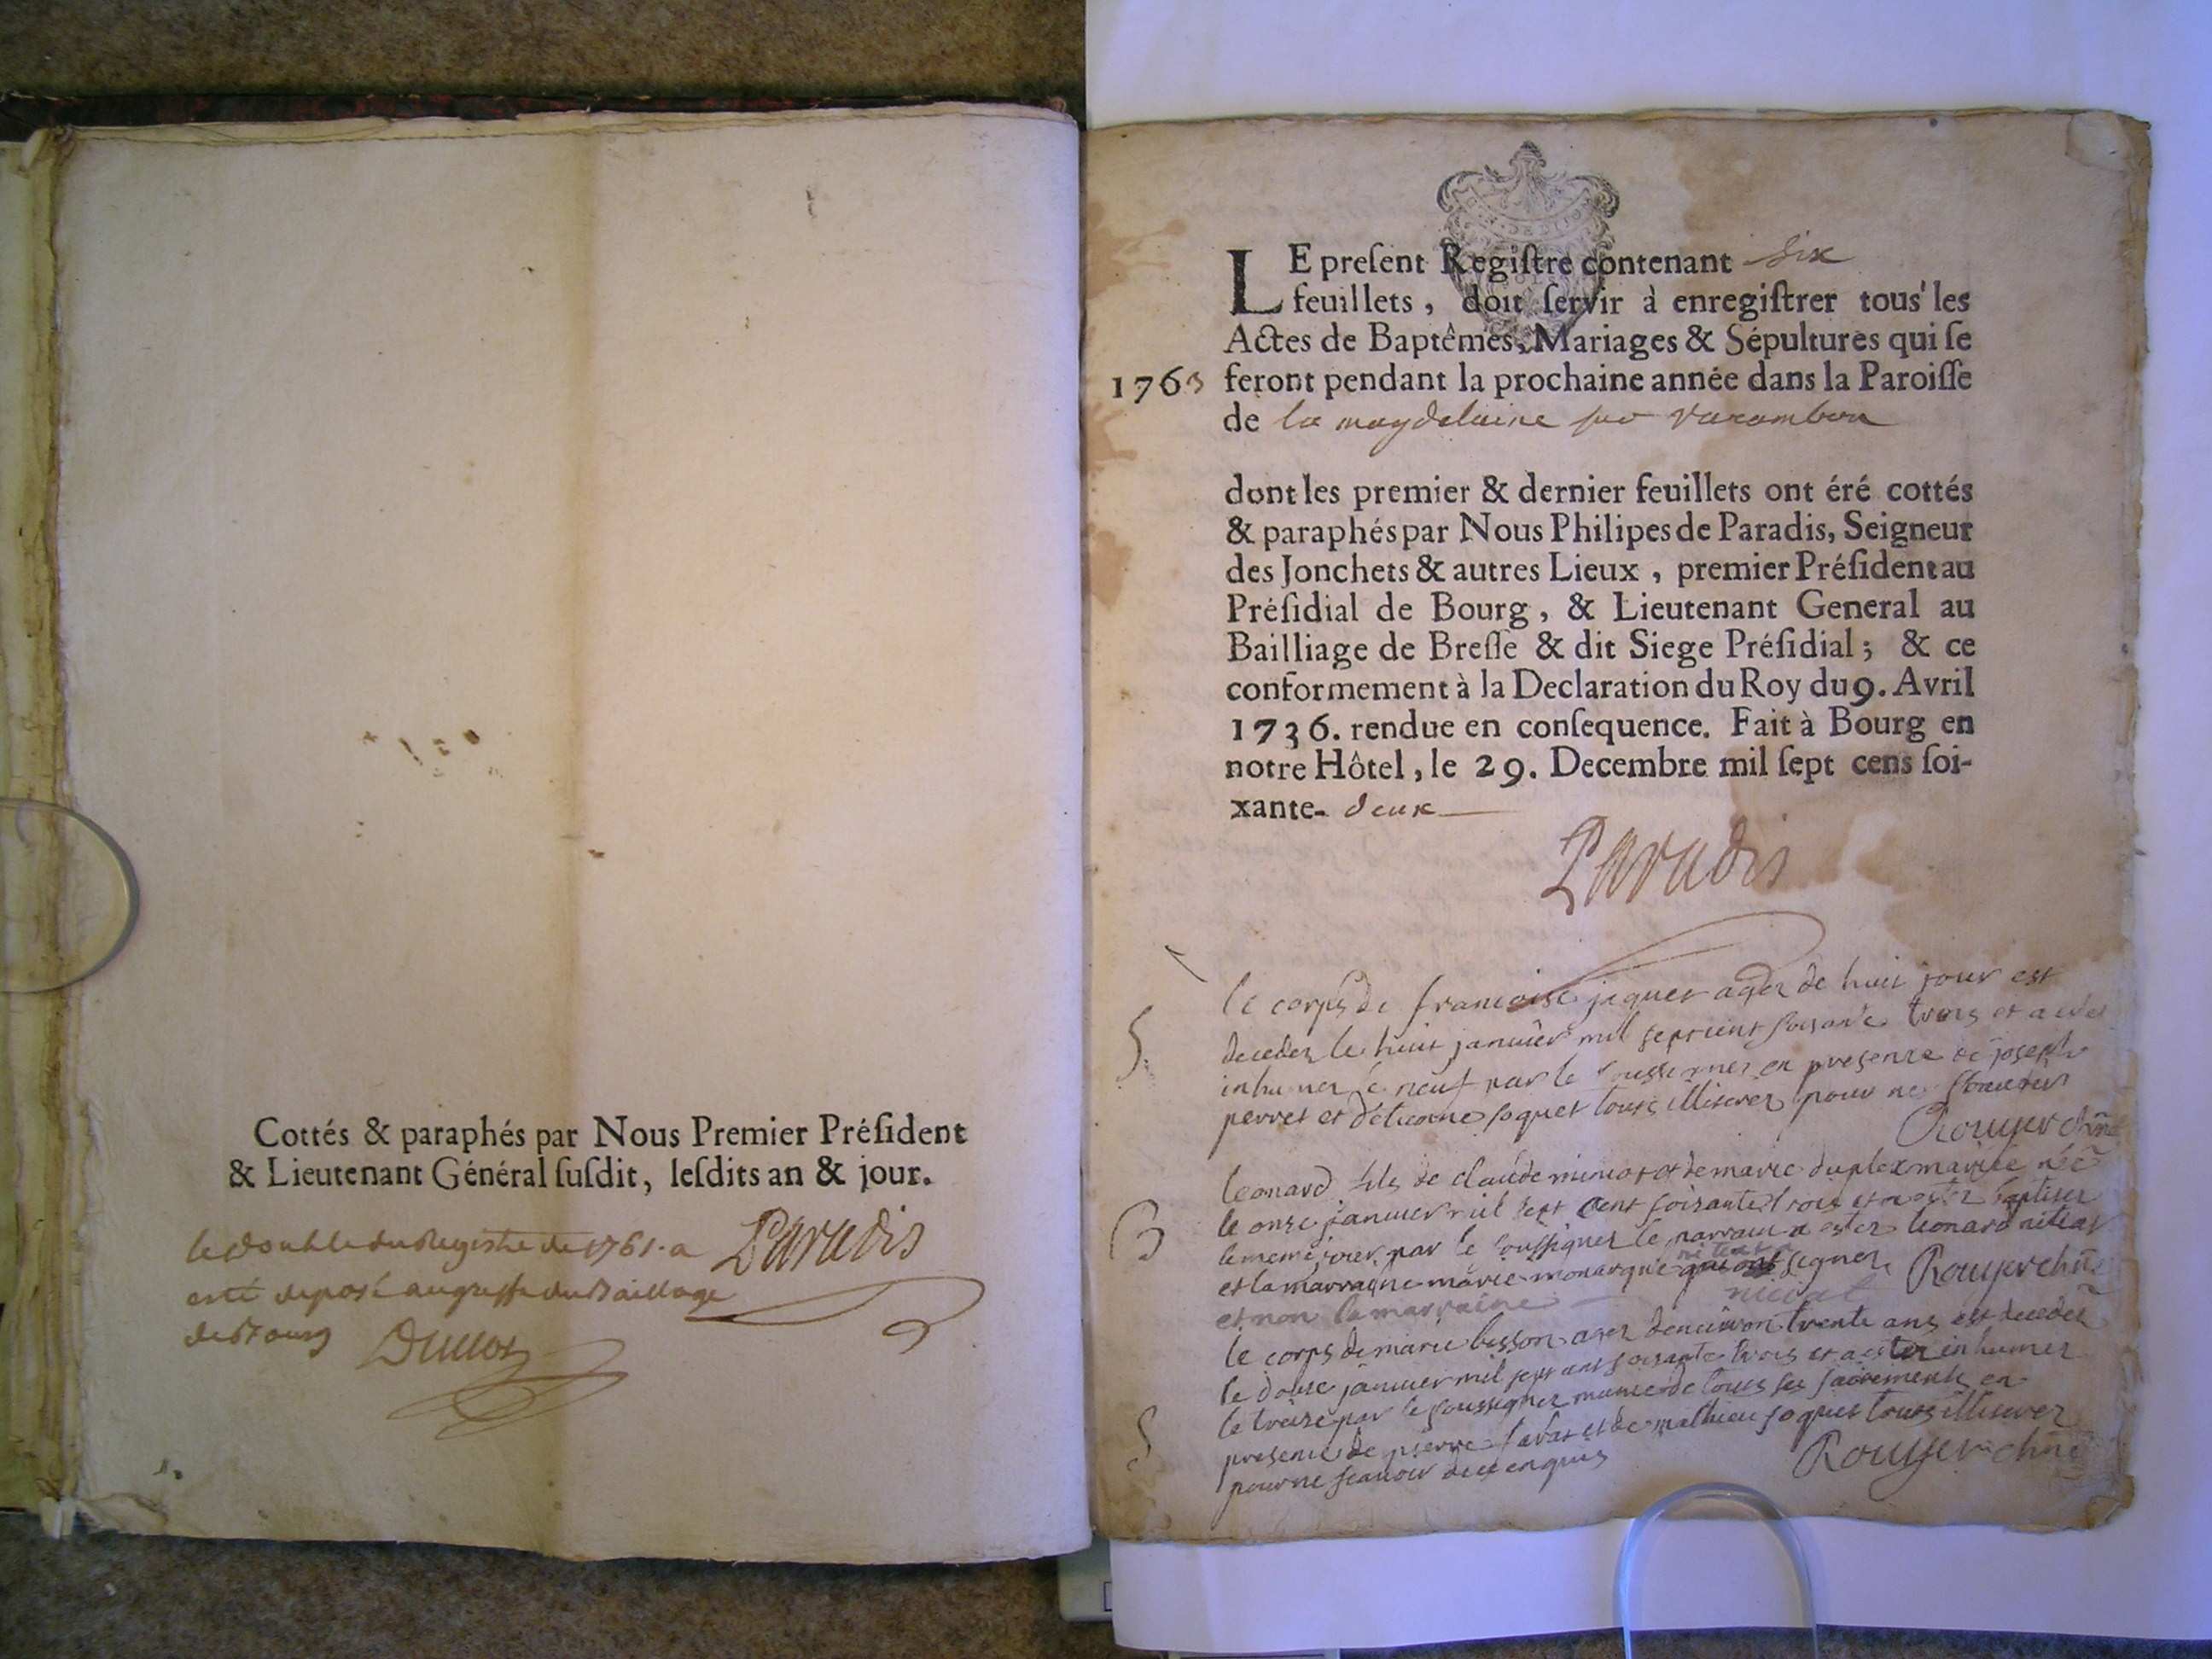 Cottés & paraphés par Nous Premier Préſident
& Lieutenant Général ſuſdit, leſdits an & jour.
le double du Registre de 1761. a Paradis
esté deposé au greffe du Baillage
de Bourg
LE preſent Regiſtre contenant six
feuillets, doit ſervir à enregiſtrer tous les
Actes de Baptêmes, Mariages & Sépultures qui ſe
1763 feront pendant la prochaine année dans la Paroiſſe
de la magdelaine sur varambon
dont les premier & dernier feuillets ont éré cottés
& paraphés par Nous Philipes de Paradis, Seigneur
des Jonchets & autres Lieux, premier Préſident au
Préſidial de Bourg, & Lieutenant General au
Bailliage de Breſſe & dit Siege Préſidial; & ce
conformement à la Declaration du Roy du 9. Avril
1736. rendue en conſequence. Fait à Bourg en
notre Hôtel, le 29. Decembre mil ſept cens ſoi-
xante- deux
Paradis
S. le corps de francoise jaquet agez de huit jour est
decedez le huit janvier mil septcent soisante trois et a estez
inhumez le neuf par le soussignez en presence de joseph
perret et d'etienne soquet tous illiterez pour ne
Rouyer
B leonard fils de claude et de marie duplex mariée née
le onze janvier mil sept cent soixante trois et a estez baptisez
le meme jour par le soussignez le parrain a estez leonard
et la marraine marie monarque signez Rouyer
et non la marraine
S le corps de marie besson agez denviron trente ans est decedez
le douze janvier mil sept cent soixante trois et a estez inhumez
le treize par le soussignez munie de tous ses sacrements en
presence de pierre et de mathieu soquet tous illiterez
pour ne scavoir de ce enquis Rouyer